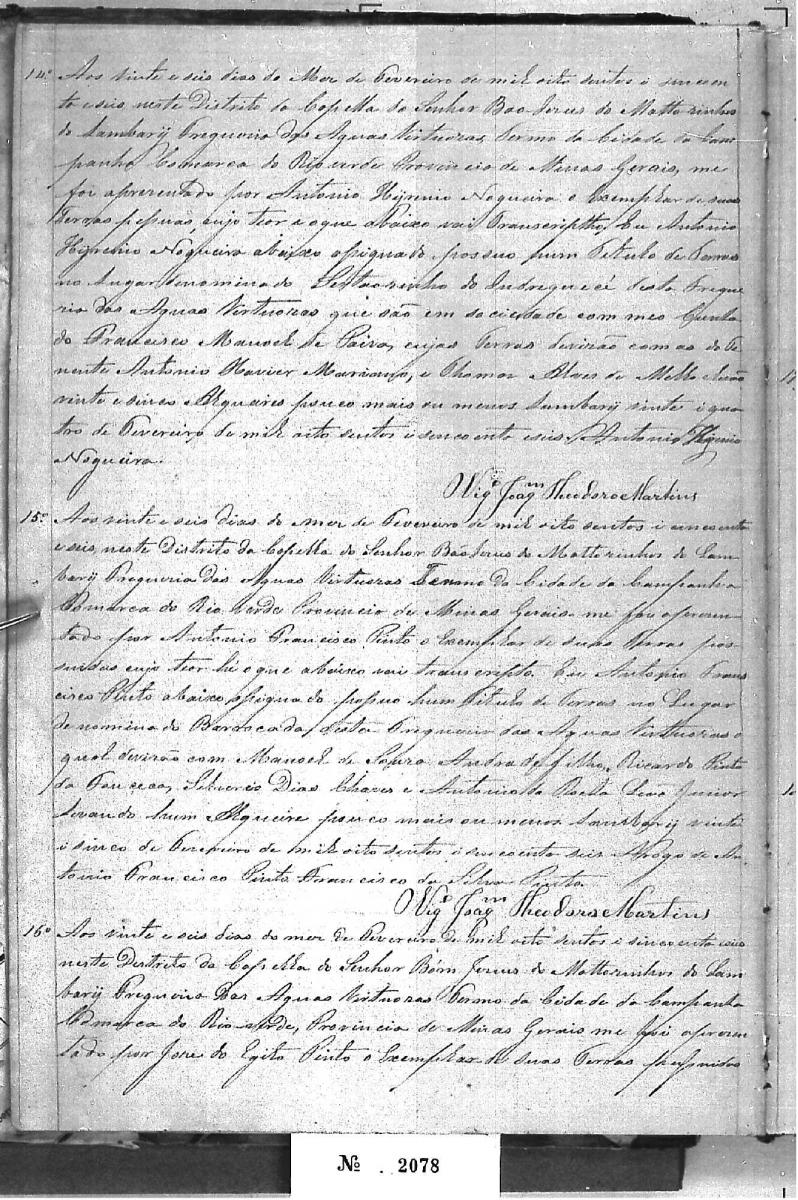 14º Aos vinte e seis dias do Mez de Fevereiro de mil oito sentos e sincoen
ta e seis neste Districto da Capella do Senhor Bao Jezus do Mattozinhos
do Lambarÿ Freguezia das Aguas Virtuozas, Termo da Cidade da Cam
panha Comarca do Rio verde Provincia de Minas Gerais, me
foi aprezentado por Antonio Hyginio Nogueira o Exemplar de suas
terras pessuas, cujo teor e o que abaixo vai Transcriptho, Eu Antonio
Higinio Nogueira abaixo asignado possuo hum Titulo de Terras
no Lugar denominado Sertaozinho do que é desta Fregue
zia das Aguas Virtuozas que são em sociedade com meo Cunha
do Francisco Manoel de Paiva, cujas Terras devizão com as do Te
nente Antonio Xavier Mariano, e Thomaz Alves de Mello Levão
vinte e sinco Alqueires pouco mais ou menos Lambarÿ vinte i qua
tro de Fevereiro de mil oito sentos e sincoenta e seis. Antonio Higinio
Nogueira.
Vigº Joaqᵐ Theodoro Martins
15º Aos vinte e seis dias do mez de Fevereiro de mil oito sentos i cincoenta
e seis, neste Districto da Capella do Senhor Bao Jezus do Mattozinhos do Lam
barÿ Freguezia das Aguas Virtuozas Termo da Cidade da Campanha
Comarca do Rio Verde Provincia de Minas Gerais me foi aprezen
tado por Antonio Francisco Pinto o Exemplar de suas terras pos
suidas cujo teor hé o que abaixo vai transcripto. Eu Antonio Fran
cisco Pinto abaixo asignado possuo hum Titulo de Terras no Lugar
denominado Barrocada desta Freguezia das Aguas Virtuozas o
qual devizão com Manoel de Souza Andrade filho, Ricardo Pinto
da Fonceca, Silverio Dias Chaves e Antonio da Rocha Leva Junior
levando hum Alqueire pouco mais ou menos Lambarÿ vinte
i sinco de Fevereiro de mil oito sentos i sincoenta seis Arogo de An
tonio Francisco Pinto Francisco da Silva Pinto
Vigº Joaqᵐ Theodoro Martins
16º Aos vinte e seis dias do mez de Fevereiro de mil oito sentos i sincoenta e seis
neste Districto da Capella do Senhor Bom Jezus do Mattozinhos do Lam
barÿ Freguezia das Aguas Virtuozas Termo da Cidade da Campanha
Comarca do Rio verde, Provincia de Minas Gerais me foi aprezen
tado por Joze do Egito Pinto o Exemplar de suas Terras pussuidas
Nº . 2078